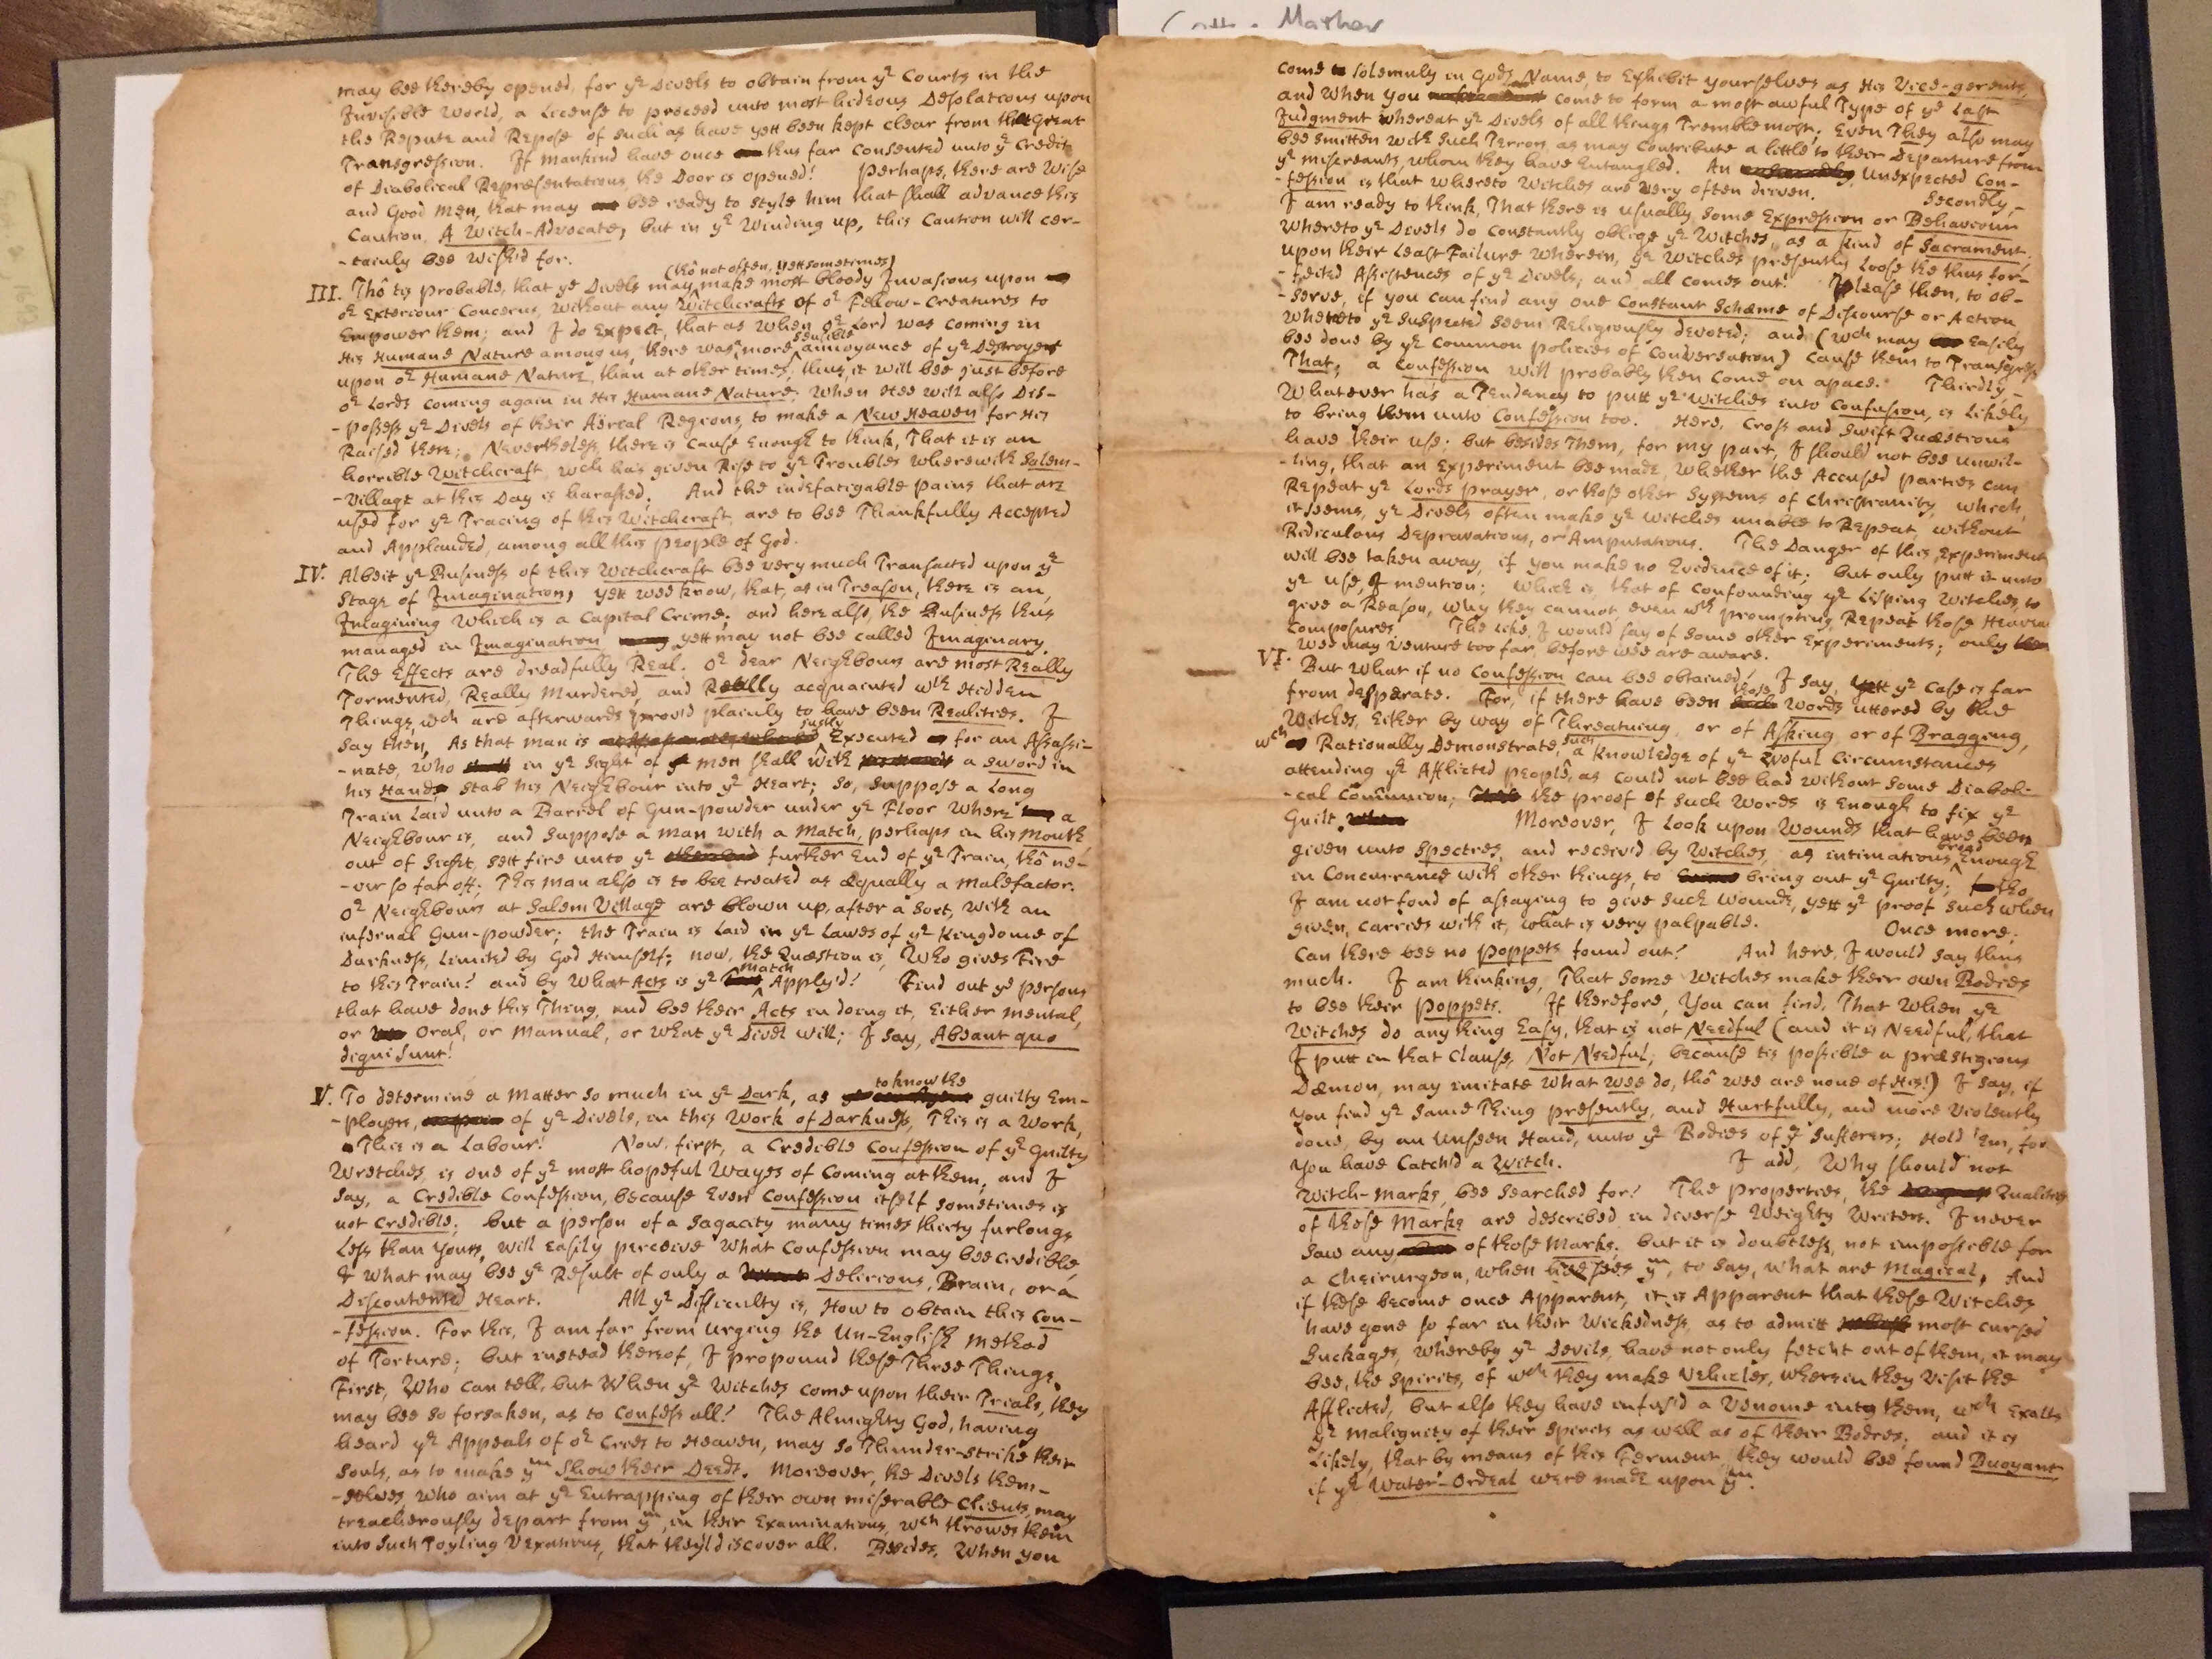 Cott. Mather
may bee thereby opened, for yͤ Divels to obtain from yͤ Courts in the
Invisible World, a License to proceed unto most hideous Desolations upon
the Repute and Repose of such as have yett been kept clear from that Great
Transgression. If mankind have once thus far consented unto yͤ Credit
of Diabolical Representations, the Door is opened! Perhaps, there are Wise
and Good men, that may bee ready to style him that shall advance this
Caution, A Witch-Advocate; but in yͤ Winding up, this Caution will cer-
-tainly bee wish'd for.
(thô not often, yett sometimes)
III. Thô tis probable, that yͤ Divels may make most bloody Invasions upon
oͬ Exteriour Concerns, without any Witchcrafts of oͬ Fellow-Creatures to
Empower them; and I do Expect, that as when oͬ Lord was coming in
sensible
His Humane Nature among us, there was a more annoyance of yͤ Destroyers
upon oͬ Humane Nature, than at other times, thus, it will bee just before
oͬ Lords coming again in His Humane Nature; When Hee will also Dis-
-possess yͤ Divels of their Aëreal Regions, to make a New Heaven for His
Raised there; Nevertheless, there is cause Enough to think, That it is an
horrible Witchcraft, wch has given Rise to yͤ Troubles wherewith Salem-
-Village at this Day is harassed; And the indefatigable pains that are
used for yͤ Tracing of this Witchcraft, are to bee Thankfully Accepted
and Applauded, among all this people of God.
IV. Albeit yͤ Business of this Witchcraft bee very much Transacted upon yͤ
Stage of Imagination, yett wee know, that, as in Treason, there is an,
Imagining which is a Capital Crime; and here also, the Business thus
managed in Imagination yett may not bee called Imaginary.
The Effects are dreadfully Real. Oͬ dear Neighbours are most Really
Tormented, Really Murdered, and Really acquainted wth Hidden
Things, wch are afterwards prov'd plainly to have been Realities. I
justly
say then, As that man is Executed for an Assassi-
-nate, who in yͤ Sight of men shall with a sword in
his Hands stab his Neighbour into yͤ Heart; so, suppose a Long
Train laid unto a Barrel of Gun-powder under yͤ Floor where a
Neighbour is, and suppose a man with a Match, perhaps in his Mouth,
out of Sight, sett fire unto yͤ further End of yͤ Train, thô ne-
-ver so far off; This man also is to bee treated as æqually a Malefactor.
Oͬ Neighbours at Salem Village are blown up, after a sort, with an
infernal Gun-powder; the Train is laid in yͤ Lawes of yͤ Kingdome of
Darkness, limited by God Himself; now, the Quæstion is, Who gives Fire
match
to this Train? and by What Acts is yͤ Apply'd? Find out yͤ persons
that have done this Thing, and bee their Acts in doing it, Either Mental,
or Oral, or Manual, or what yͤ Divel will; I say, Abeant quo
digni sunt!
to know the
V. To determine a Matter so much in yͤ Dark, as guilty Em-
-ployers, of yͤ Divels, in this Work of Darkness, This is a Work,
This is a Labour! Now, first, a Credible Confession of yͤ Guilty
Wretches, is one of yͤ most hopeful Wayes of Coming at them, and I
say, a Credible Confession, because Even Confession itself sometimes is
not Credible; but a person of a Sagacity many times thirty furlongs
Less than yours, will easily perceive what Confession may bee credible,
& what may bee yͤ Result of only a Delirious Brain, or a
Discontented Heart. All yͤ Difficulty is, How to obtain this Con-
-fession. For this, I am far from urging the Un-English method
of Torture; but instead thereof, I propound these Three Things.
First, Who can tell, but when yͤ Witches come upon their Trials, they
may bee so forsaken, as to Confess all! The Almighty God, having
heard yͤ Appeals of oͬ Cries to Heaven, may so Thunder-strike their
souls, as to make yͫ Show their Deeds. Moreover, the Divels them-
-selves who aim at yͤ Entrapping of their own miserable Clients, may
treacherously depart from yͫ, in their Examinations, wch throwes them
into such Toyling Vexations, that they'l discover all. Besides, When you
come so solemnly in Gods Name, to Exhibit yourselves as His Vice-gerents,
and when you come to form a most awful Type of yͤ Last
Judgment whereat yͤ Divels of all things Tremble most; Even They also may
bee smitten with such Terrors, as may contribute a little to their Departure from
yͤ miscreants, whom they have Entangled. An Unexpected Con-
-fession is that whereto Witches are very often driven. Secondly,-
I am ready to think, That there is usually some Expression or Behaviour
whereto yͤ Divels do constantly oblige yͤ Witches, as a kind of Sacrament;
upon their least Failure wherein, yͤ Witches presently loose the thus for-
-feited Assistences of yͤ Divels, and all comes out! Please then, to ob-
-serve, if you can find any one Constant Scheme of Discourse or Action,
whereto yͤ suspected seem Religiously devoted; and (wch may Easily
bee done by yͤ common policies of Conversation) cause them to Transgress
That, a Confession will probably then come on apace. Thirdly,-
Whatever ha's a Tendency to putt yͤ Witches into Confusion, is likely
to bring them unto Confession too. Here, Cross and swift Quæstions
have their use; but besides Them, for my part, I should not bee unwil-
-ling, that an Experiment bee made, whether the Accused parties can
Repeat yͤ Lords prayer, or those other Systems of Christianity, which,
it seems, yͤ Divels often make yͤ Witches unable to Repeat, without
Ridiculous Depravations, or Amputations. The Danger of this Experiment
will bee taken away, if you make no Evidence of it; but only putt it unto
yͤ use, I mention; which is, that of Confounding yͤ Lisping Witches, to
give a Reason, why they cannot, even wth prompting, Repeat those Heavenly
Composures. The like, I would say of some other Experiments; only
Wee may venture too far, before wee are aware.
VI. But what if no Confession can bee obtained? I say, yett yͤ Case is far
those
from desperate. For, if there have been Words uttered by the
Witches, Either by way of Threatning, or of Asking, or of Bragging,
such
wch Rationally Demonstrate, a Knowledge of yͤ Woful Circumstances
attending yͤ Afflicted people, as could not bee had without some Diaboli-
-cal Com̃union; the proof of such Words is Enough to fix yͤ
Guilt. Moreover, I look upon Wounds that have been
given unto Spectres, and receiv'd by Witches, as intimations broad Enough
in Concurrence with other things, to bring out yͤ Guilty; tho
I am not fond of assaying to give such Wounds, yett yͤ proof such when
given, carries with it, what is very palpable. Once more,
Can there bee no Poppets found out? And here, I would say thus
much. I am thinking, That some Witches make their own Bodies
to bee their Poppets. If therefore, You can find, That when yͤ
Witches do any thing Easy, that is not Needful (and it is Needful, that
I putt in that Clause, Not Needful; because tis possible a præstigious
Dæmon, may imitate what wee do, thô wee are none of His!) I say, if
you find yͤ same Thing presently, and Hurtfully, and more violently
done, by an Unseen Hand, unto yͤ Bodies of yͤ Sufferers; Hold 'Em, for
you have Catch'd a Witch. I add, Why should not
Witch-Marks, bee searched for? The Properties, the Qualities
of those Marks are described in diverse weighty writers. I never
saw any of those Marks; but it is doubtless, not impossible for
a Cheirurgeon, when hee sees yͫ, to say, what are Magical, And
if these become once Apparent, it is Apparent that these Witches
have gone so far in their Wickedness, as to admitt most cursed
Suckages, whereby yͤ Devils, have not only fetch't out of them, it may
bee, the Spirits, of wch they make Vehicles, wherein they visit the
Afflicted, but also they have infus'd a Venome into them, wch Exalts
yͤ malignity of their Spirits as well as of their Bodies; and it is
likely, that by means of this Ferment, they would bee found Buoyant
if yͤ Water-Ordeal were made upon yͫ.